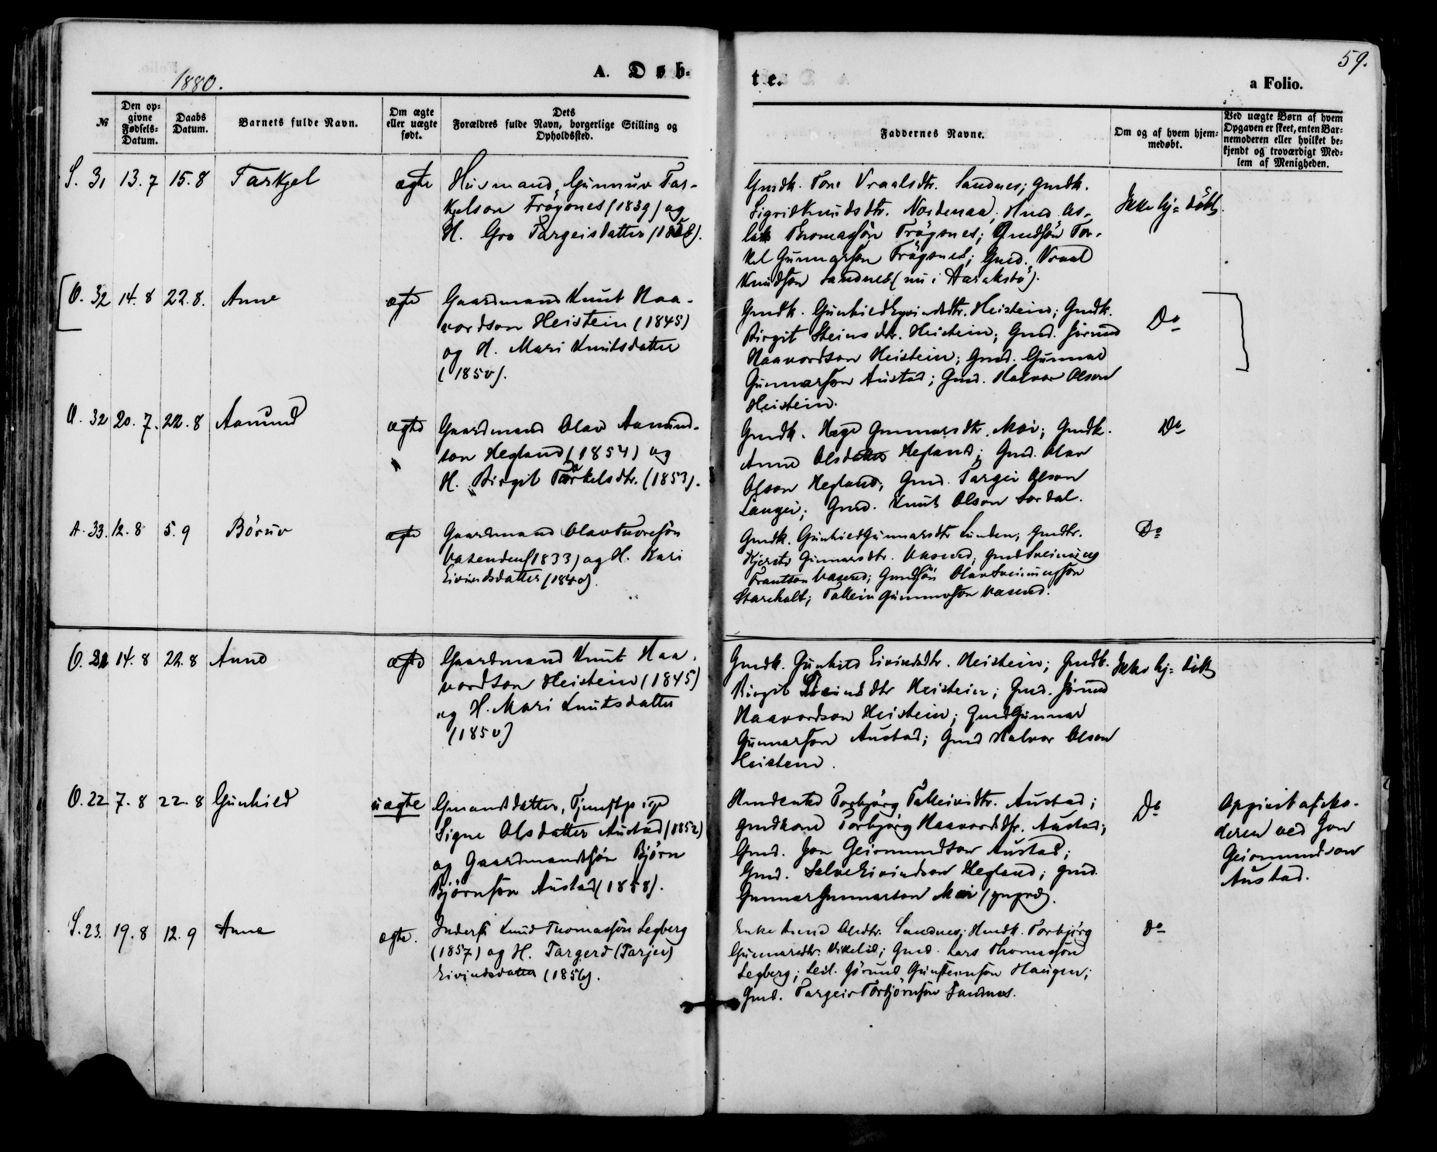 59.
1880.
A. Døb-
te.
a Folio.
№
Den op-
givne
Fødsels-
Datum.
Daabs
Datum.
Barnets fulde Navn.
Om ægte
eller uægte
født.
Dets
Forældres fulde Navn, borgerlige Stilling og
Opholdssted.
Faddernes Navne.
Om og af hvem hjem-
medøbt.
Ved uægte Børn af hvem
Opgaven er skeet, enten Bar-
nemoderen eller hvilket be-
kjendt og troværdigt Med-
lem af Menigheden.
S. 31 13.7 15.8 Tarkjel ægte
Huusmand Gunnuv Tar-
kjelson Frøysnes (1839) og
H. Gro Targeisdatter
Gmdk. Tone Vraalsdtr. Sandnes; Gmdk.
Sigrid Knudsdtr. Nordenaa; Hmd As-
lak Thomassøn Frøysnes; Gmdsøn Tor-
kel Gunnarson Frøysnes; Gmd. Vraal
Knudsøn Sandnes (nu i Aaraksbø).
Ikke hj= døbt
O. 32 14.8 22.8. Anne ægte
Gaardmand Knut Haa-
vordson Heistein (1845)
og H. Mari Knutsdatter
(1850).
Gmdk. Gunhild Eyvindsdtr. Heistein; Gmdk.
Birgit Steinsdtr. Heistein; Gmd. Jørund
Haavordson Heistein; Gmd. Gunnar
Gunnarson Austad; Gmd. Halvor Olson
Heistein.
Do
O. 32 20.7. 22.8 Aamund ægte
Gaardmand Olav Aamund-
son Hegland (1854) og
H. Birgit Tarkelsdtr. (1853).
Gmdk. Hæge Gunnarsdtr. Moi; Gmdk.
Anne Olsdatter Hegland; Gmd. Olav
Olson Hegland; Gmd. Targei Olson
Langei; Gmd. Knut Olson Sordal.
Do
A. 33. 12.8 5.9 Børuv ægte
Gaardmand Olav Tvoresøn
Vasenden (1833) og H. Kari
Eivindsdatter (1840).
Gmdk. Gunhild Gunnarsdtr. Linden; Gmdtr.
Kjersti Gunnarsdtr. Vasend; Gmd Sveinung
Vasend; Gmdsøn Olav Sveinungssøn
Stareholt; Talleiv Gunnuvsøn Vasend.
Do
O. 14.8 22.8 Anne ægte
Gaardmand Knut Haa-
vordson Heistein (1845)
og H. Mari Knutsdatter
(1850)
Gmdk. Gunhild Eivindsdtr. Heistein; Gmdk.
Birgit Steinsdtr Heistein; Gmd. Jørund
Haavordson Heistein; Gmd Gunnar
Gunnarson Austad; Gmd Halvor Olson
Heistein.
Ikke hj= døbt
O. 22 7.8 22.8 Gunhild uægte
Gmandsdatter, Tjenestpige
Signe Olsdatter Austad (1852)
og Gaardmandssøn Bjørn
Bjørnson Austad (1858).
Hmdenke Torbjørg Talleivsdtr. Austad;
gmdkone Torbjørg Haavordsdtr. Austad;
Gmd. Jon Geirmundson Austad;
Gmd. Salve Eivindson Hegland; gmd.
Gunnar Gunnarson Moi
Do
Opgivet af
deren ved Jon
Geirmundson
Austad.
S. 23. 19.8 12.9 Anne ægte.
Inderst Knud Thomassøn Legberg
(1857) og H. Targerd (Tarjer)
Eivindsdatter (1856).
Enke Olsdtr. Sandnes; Hmdk. Torbjørg
Gunnarsdtr. ; Gmd. Lars Thomsøn
Legberg; Leil. Gjørund Gunsteinsøn Haugen;
Gmd. Targeir Torbjørnsøn Sandnes.
do